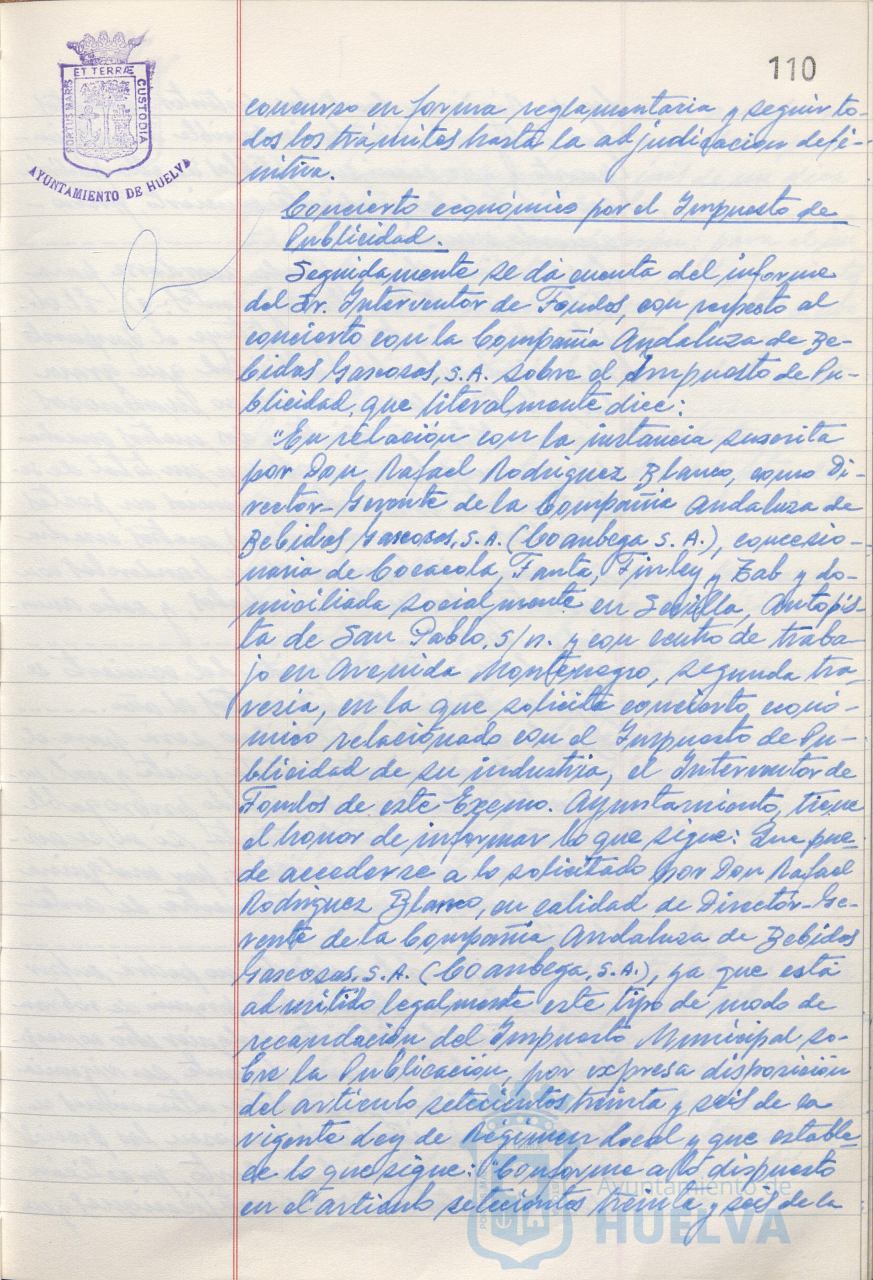 110
ET TERRÆ
PORTUS MARIS
CUSTODIA
AYUNTAMIENTO DE HUELVA
concurso en forma reglamentaria y seguir to-
dos los trámites hasta la adjudicación defi-
nitiva.
Concierto económico por el Impuesto de
Publicidad.
Seguidamente se dá cuenta del informe
del Sr. Interventor de Fondos, con respecto al
concierto con la Compañía Andaluza de Be-
bidas Gaseosas, S.A. sobre el Impuesto de Pu-
blicidad, que literalmente dice:
"En relación con la instancia suscrita
por Don Rafael Rodríguez Blanco, como Di-
rector-Gerente de la Compañía Andaluza de
Bebidas Gaseosas, S.A. (Coanbega S.A.), concesio-
naria de Cocacola, Fanta, Finley y Tab y do-
miciliada socialmente en Sevilla, Autopis-
ta de San Pablo, s/n. y con centro de traba-
jo en Avenida Montenegro, segunda tra-
vesía, en la que solicita concierto econó-
mico relacionado con el Impuesto de Pu-
blicidad de su industria, el Interventor de
Fondos de este Excmo. Ayuntamiento, tiene
el honor de informar lo que sigue: Que pue-
de accederse a lo solicitado por Don Rafael
Rodríguez Blanco, en calidad de Director-Ge-
rente de la Compañía Andaluza de Bebidas
Gaseosas, S.A. (Coanbega, S.A.), ya que está
admitido legalmente este tipo de modo de
recaudación del Impuesto Municipal so-
bre la Publicación, por expresa disposición
del artículo setecientos treinta y seis de la
vigente Ley de Régimen local y que estable-
ce lo que sigue: "Conforme a lo dispuesto
en el artículo setecientos treinta y seis de la
Ayuntamiento de
HUELVA